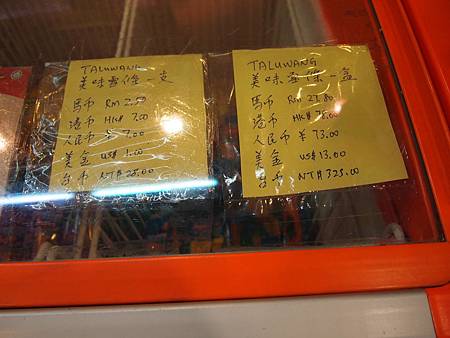 TALUWANG
美味雪條一支
馬币 RM 2.80
港币 HK$ 7.00
人民币 ¥ 7.00
美金 US$ 1.00
台币 NT$ 28.00
TALUWANG
美味雪條一盒
馬币 RM 27.80
港币 HK$ 78.00
人民币 ¥ 73.00
美金 US$ 13.00
台币 NT$ 328.00